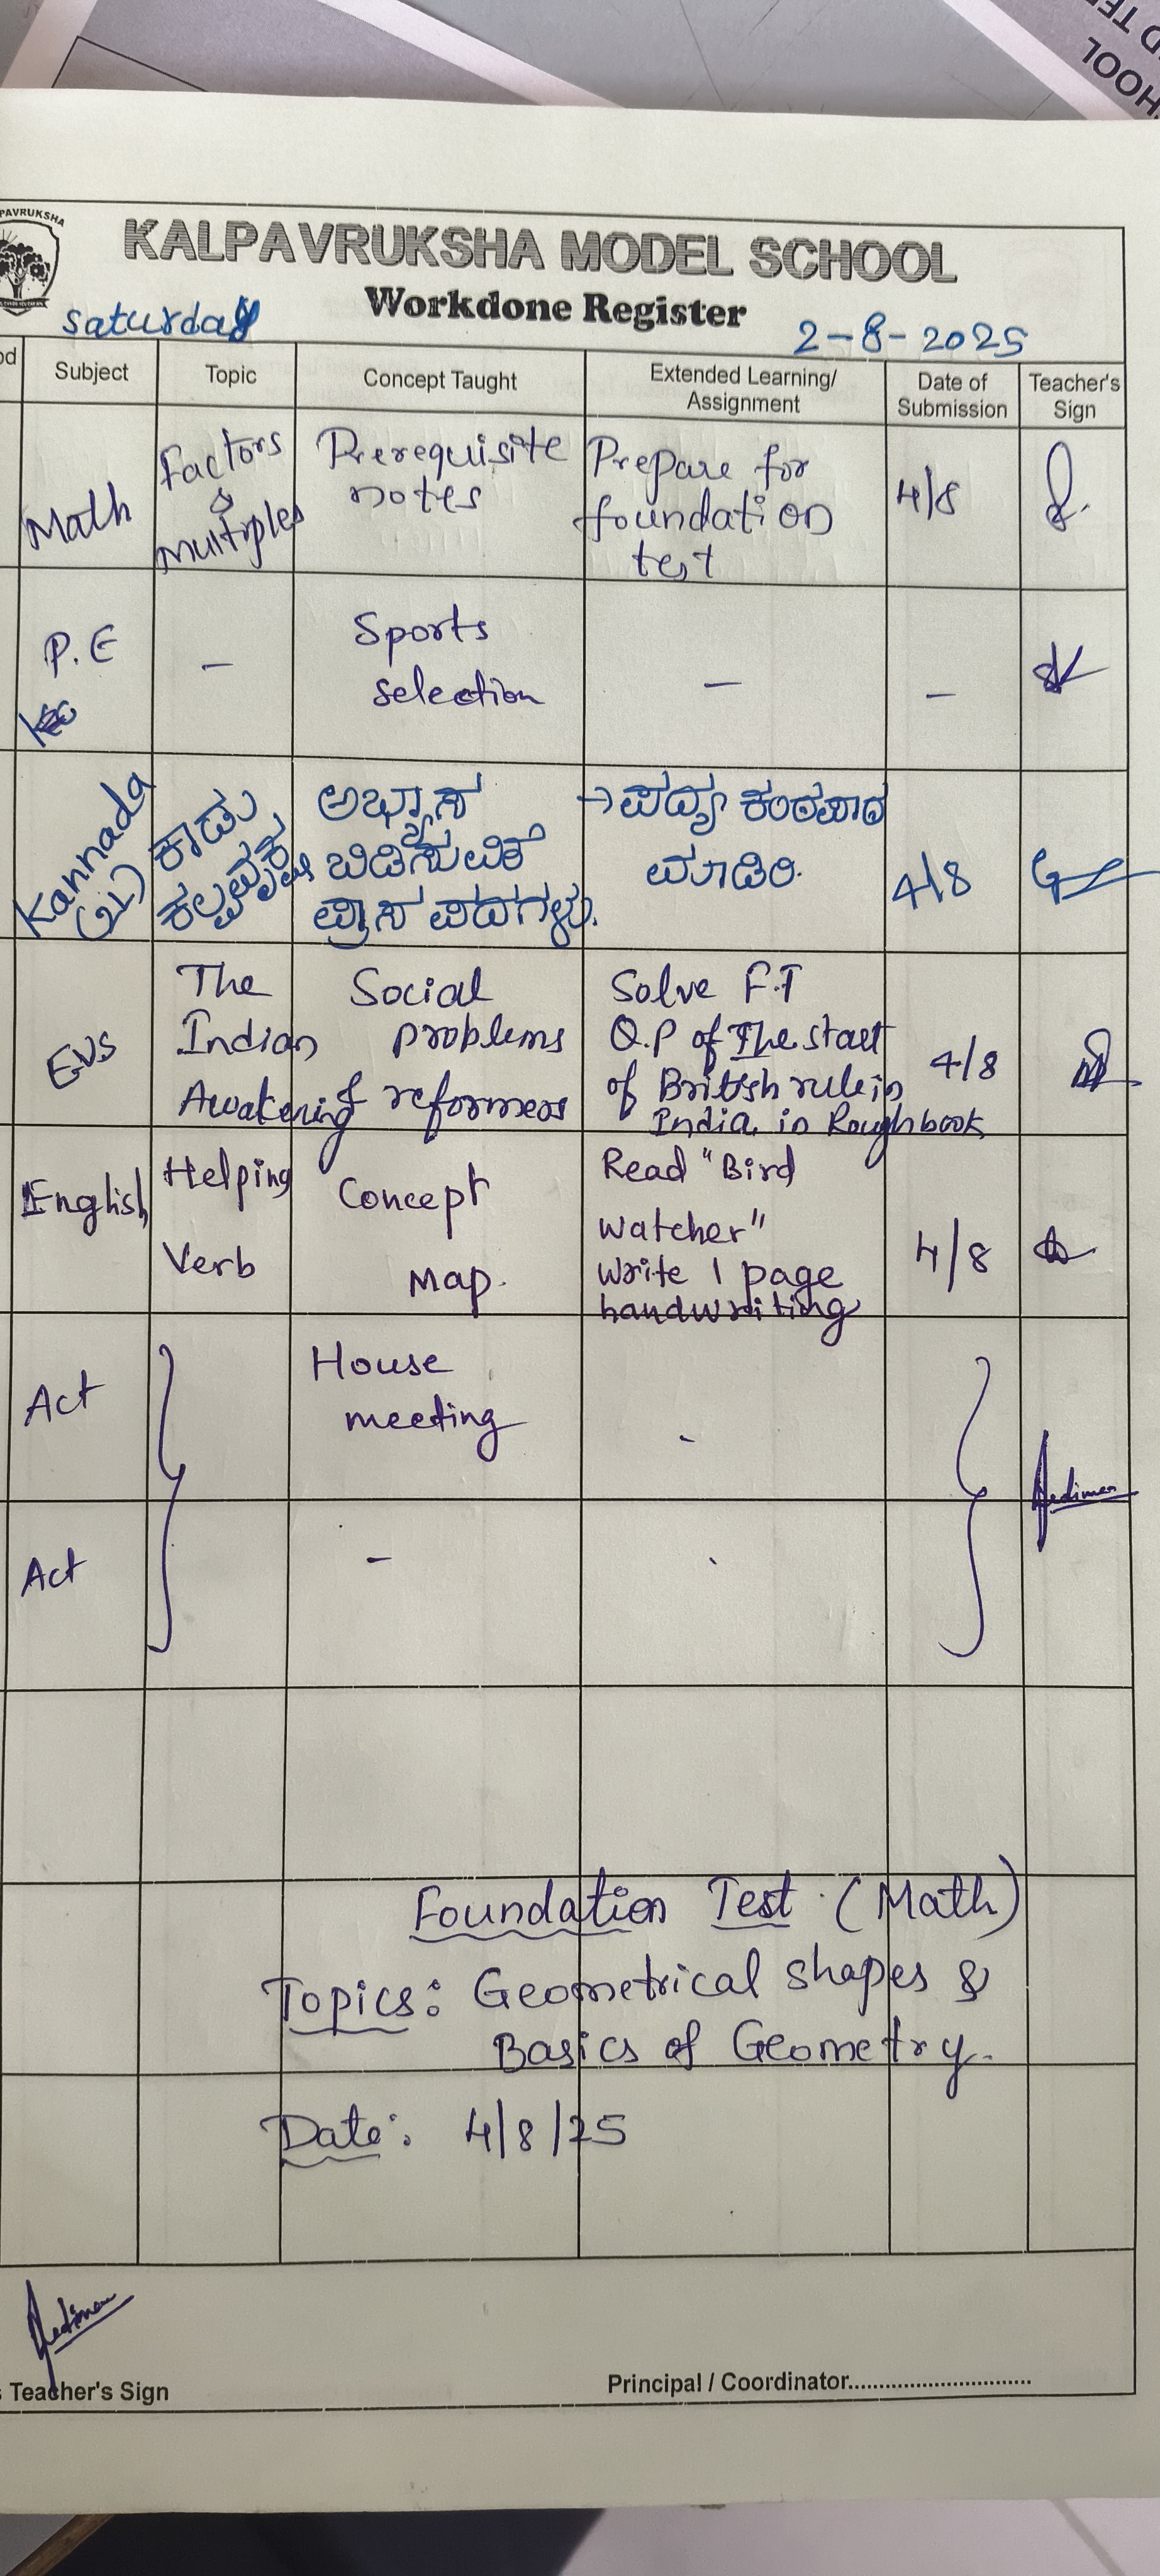 HOOL
D TE
PAVRUKSHA
KALPAVRUKSHA MODEL SCHOOL
Workdone Register
Saturday
2-8-2025
od Subject Topic Concept Taught Extended Learning/ Assignment Date of Submission Teacher's Sign
Math
Factors
&
multiples
Prerequisite
notes
Prepare for
foundation
test
4/8
P.E
-
Sports
selection
-
-
Kannada
(2L)
ಕಾಡು
ಕಲ್ಪವೃಕ್ಷ
ಅಭ್ಯಾಸ
ಬಿಡಿಸುವಿಕೆ
ಪ್ರಾಸ ಪದಗಳು.
→ ಪದ್ಯ ಕಂಠಪಾಠ
ಮಾಡಿರಿ.
4/8
EVS
The
Indian
Awakening
Social
problems
& reformers
Solve F.T
Q.P of The start
of British rule in
India in Roughbook
4/8
English
Helping
Verb
Concept
Map.
Read "Bird
watcher"
write 1 page
handwriting
4/8
Act
House
meeting
-
Act
-
Foundation Test (Math)
Topics: Geometrical shapes &
Basics of Geometry.
Date: 4/8/25
Teacher's Sign
Principal / Coordinator..............................